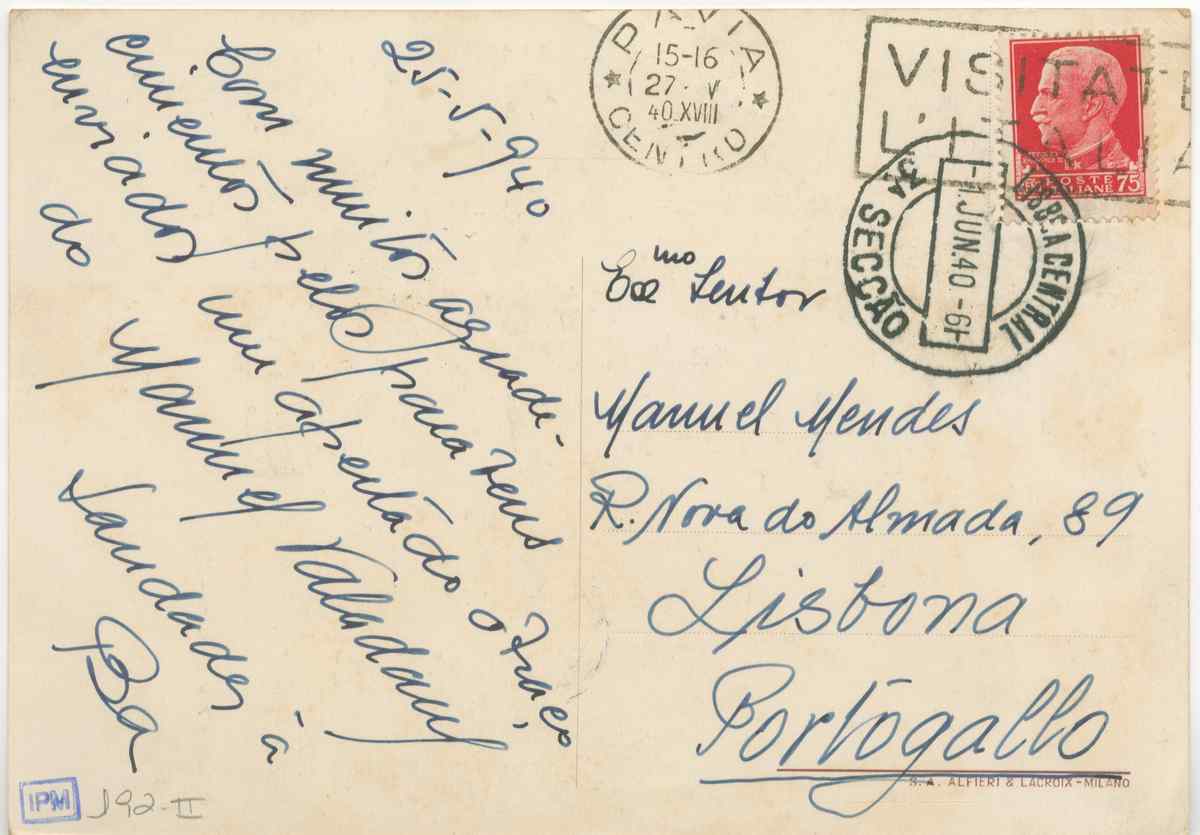 25-5-940
Com muitos agrade-
cimentos pelos parabens
enviados um apertado abraço
do Manuel Valadares
Saudades à
Ba
PAVIA
15-16
27 V
40 XVIII
CENTRO
VISITATE
L'ITALIA
POSTE
ITALIANE 75
LISBOA CENTRAL
-1.JUN.40-19
3ª SECÇÃO
Exmo Senhor
Manuel Mendes
R. Nova do Almada, 89
Lisbona
Portogallo
S. A. ALFIERI & LACROIX - MILANO
IPM
192-II